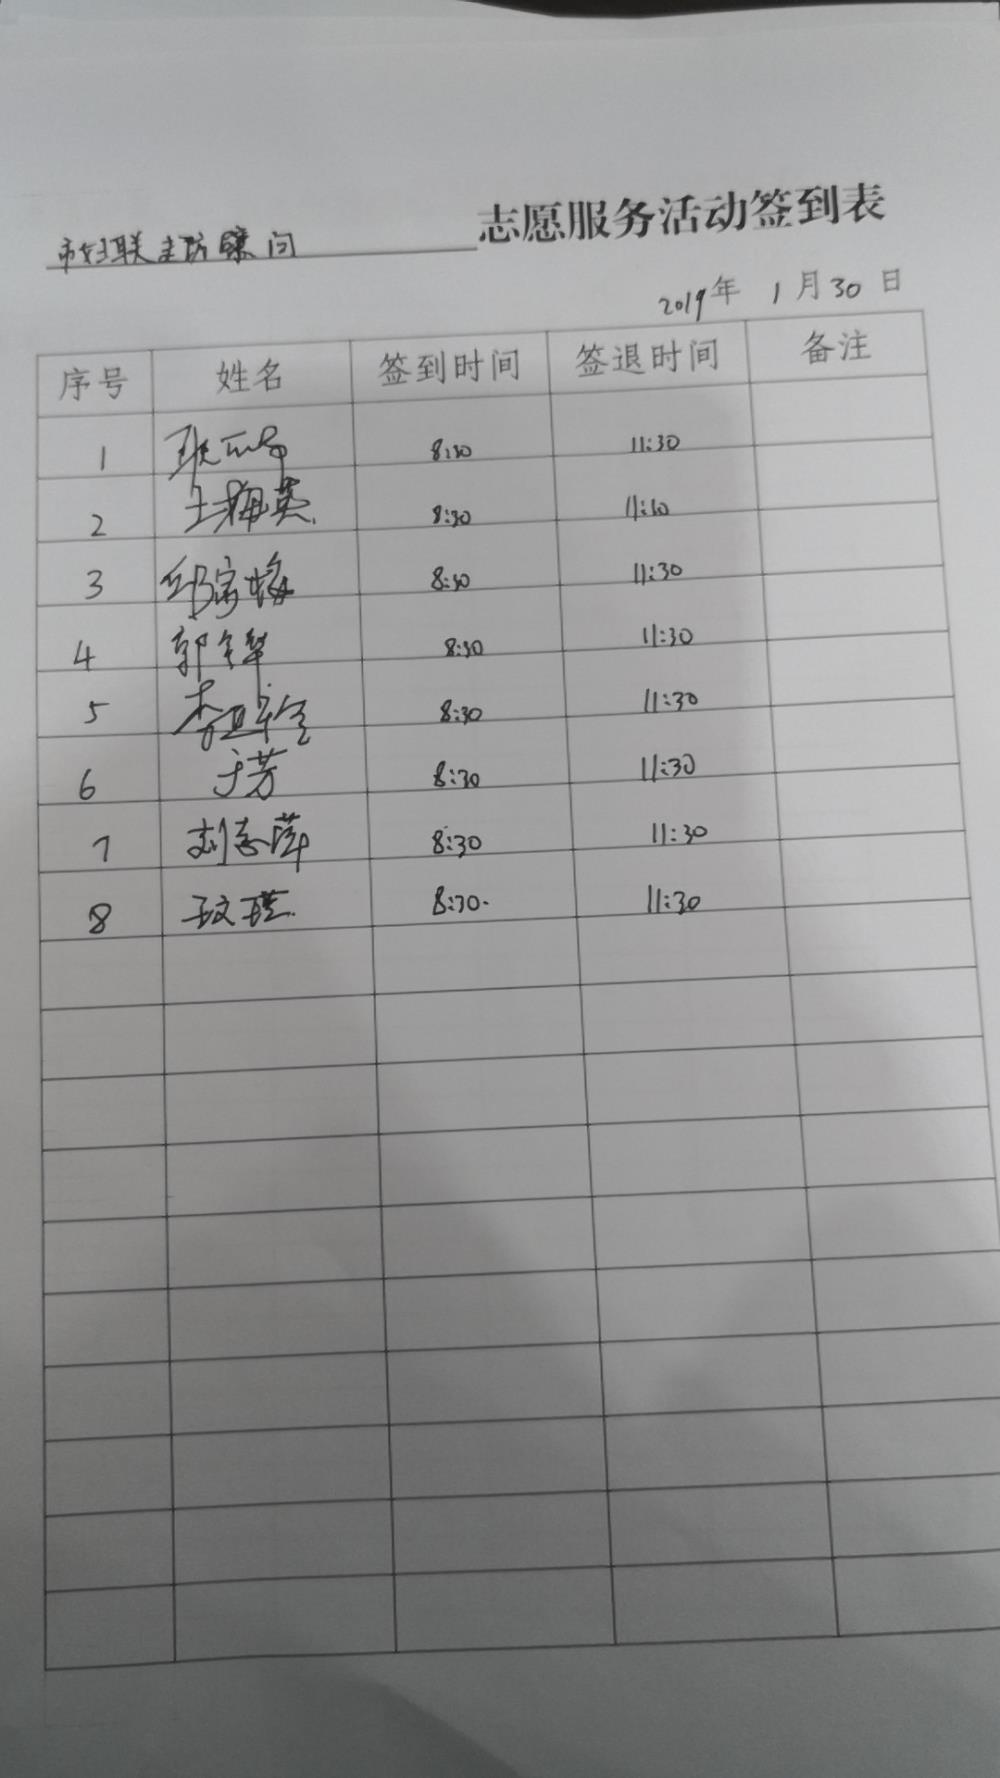 市妇联走访慰问 志愿服务活动签到表
2019年 1月30日
序号 姓名 签到时间 签退时间 备注
1 8:30 11:30
2 王梅英 8:30 11:30
3 邱家梅 8:30 11:30
4 郭 8:30 11:30
5 李 8:30 11:30
6 于芳 8:30 11:30
7 刘志萍 8:30 11:30
8 8:30 11:30